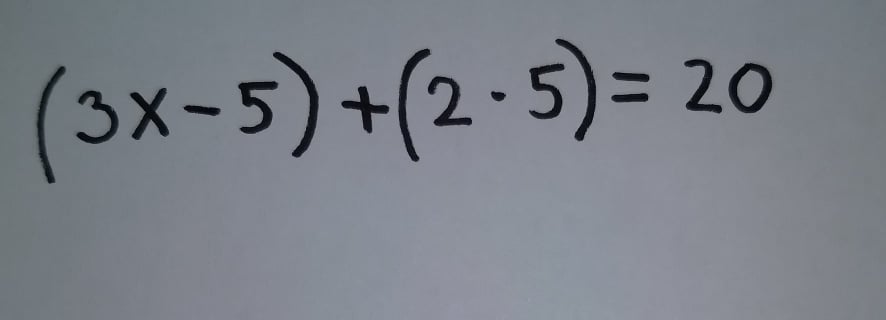 (3x-5)+(2·5)=20